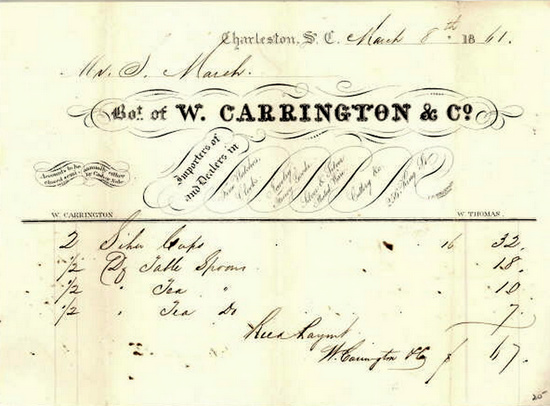 Charleston, S. C. March 8th. 1861.
Mr. S. Marsh.
Bot. of W. CARRINGTON & Co.
Importers of
and Dealers in
Fine Watches,
Clocks
Jewelry
Fancy Goods
Silver & Silver
Plated Ware
Cutlery &c
236 King St
Accounts to be
closed semi-annually
either by Cash or Note
W. CARRINGTON
W. THOMAS.
2 Silver Cups 16 32.
1/2 Dz Table Spoons 18.
1/2 " Tea " 10
1/2 " Tea Do 7.
Recd Paymt $ 67.
W. Carrington & Co
20-